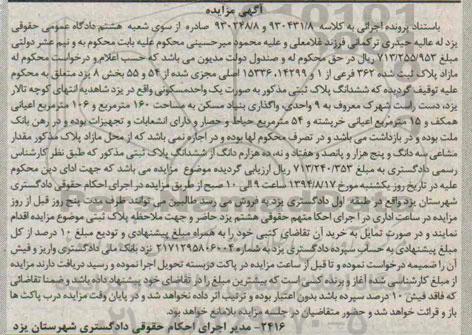 آگهی مزایده
باستناد پرونده اجرائی به کلاسه ۹۳۰۴۳۱/۸ و ۹۳۰۲۴۸/۸ صادره از سوی شعبه هشتم دادگاه عمومی حقوقی
یزد له عالیه حیدری ترکمانی فرزند غلامعلی و علیه محمود میرحسینی محکوم علیه بابت محکوم به و نیم عشر دولتی
مبلغ ۷۱۳/۲۵۵/۹۵۳ ریال در حق محکوم له و صندوق دولت مدیون می باشد که حسب اعلام و درخواست محکوم له
مازاد پلاک ثبت شده ۳۶۲ فرعی از ۱ و ۱۵۳۳۶،۱۴۲۹۹ اصلی مجزی شده از ۵۴ و ۵۵ بخش ۸ یزد متعلق به محکوم
علیه توقیف گردیده که ششدانگ پلاک ثبتی مذکور به صورت یک واحدمسکونی واقع در یزد شاهدیه انتهای کوچه تالار
یزد، دست راست شهرک معروف به ۹ واحدی، واگذاری بنیاد مسکن به مساحت ۱۶۰ مترمربع و ۱۰۶ مترمربع اعیانی
همکف و ۱۵ مترمربع اعیانی خرپشته و ۵۴ مترمربع حیاط و حصار و دارای انشعابات و تجهیزات بوده و در رهن بانک
ملت بوده و در بازداشت می باشد و در تصرف محکوم لها بوده و در اجاره نمی باشد که از محل مازاد پلاک مذکور مقدار
مشاعی سه دانگ و پنج هزار و پانصد و هفتاد و نه، ده هزارم دانگ از ششدانگ پلاک ثبتی مذکور که طبق نظر کارشناس
رسمی دادگستری به مبلغ ۷۱۳/۲۴۰/۳۵۳ ریال ارزیابی گردیده موضوع مزایده می باشد که جهت ادای دین محکوم
علیه در تاریخ روز یکشنبه مورخ ۱۳۹۴/۸/۱۷ ساعت ۹ الی ۱۰ صبح از طریق مزایده در اجرای احکام حقوقی دادگستری
شهرستان یزد واقع در طبقه اول دادگستری یزد به فروش می رسد طالبین می توانند ظرف مدت پنج روز قبل از روز
مزایده در ساعت اداری در اجرای احکام حقوقی هشتم یزد حاضر و جهت ملاحظه پلاک ثبتی موضوع مزایده اقدام
نمایند و در صورت تمایل به خرید آن تقاضای کتبی خود را به همراه مبلغ پیشنهادی و تودیع مبلغ ۱۰ درصد از کل
مبلغ پیشنهادی به حساب سپرده دادگستری یزد به شماره ۲۱۷۱۲۹۵۸۰۶۰۰۴ نزد بانک ملی دادگستری واریز و فیش
آن را ضمیمه درخواست نموده و تا قبل از ساعت مزایده در پاکت دربسته تحویل اجرا نموده و رسید دریافت دارند مزایده
از مبلغ کارشناسی شده آغاز و برنده کسی است که بیشترین مبلغ را در تقاضای خود پیشنهاد داده باشد، ضمنا تقاضائی
که فاقد فیش ۱۰ درصد سپرده باشد بدون اعتبار بوده و ترتیب اثر داده نخواهد شد و در پایان وقت مزایده درب پاکت ها
باز و قرائت خواهد شد و حضور متقاضیان در جلسه مزایده بلامانع خواهد بود.
۲۴۱۶- مدیر اجرای احکام حقوقی دادگستری شهرستان یزد